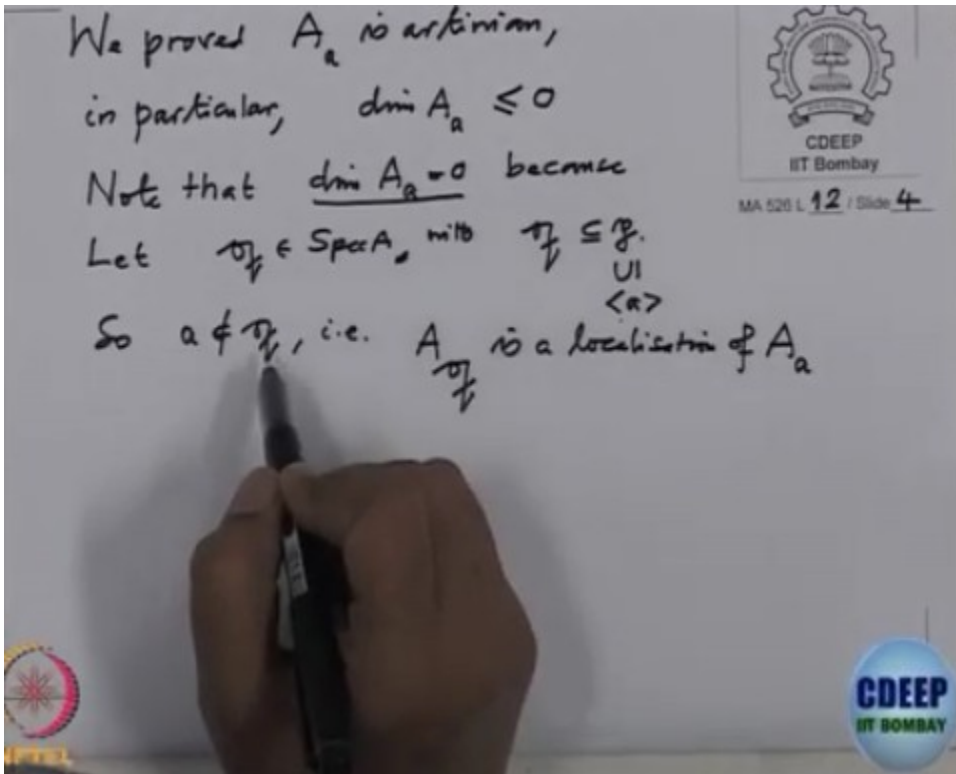 We proved A_a is artinian,
in particular, dim A_a ≤ 0
Note that dim A_a = 0 because
Let 𝔮 ∈ Spec A, with 𝔮 ⊆ 𝔭.
∪|
<a>
So a ∉ 𝔮, i.e. A_𝔮 is a localisation of A_a
CDEEP
IIT Bombay
MA 526 L 12 / Slide 4
NPTEL
CDEEP
IIT BOMBAY